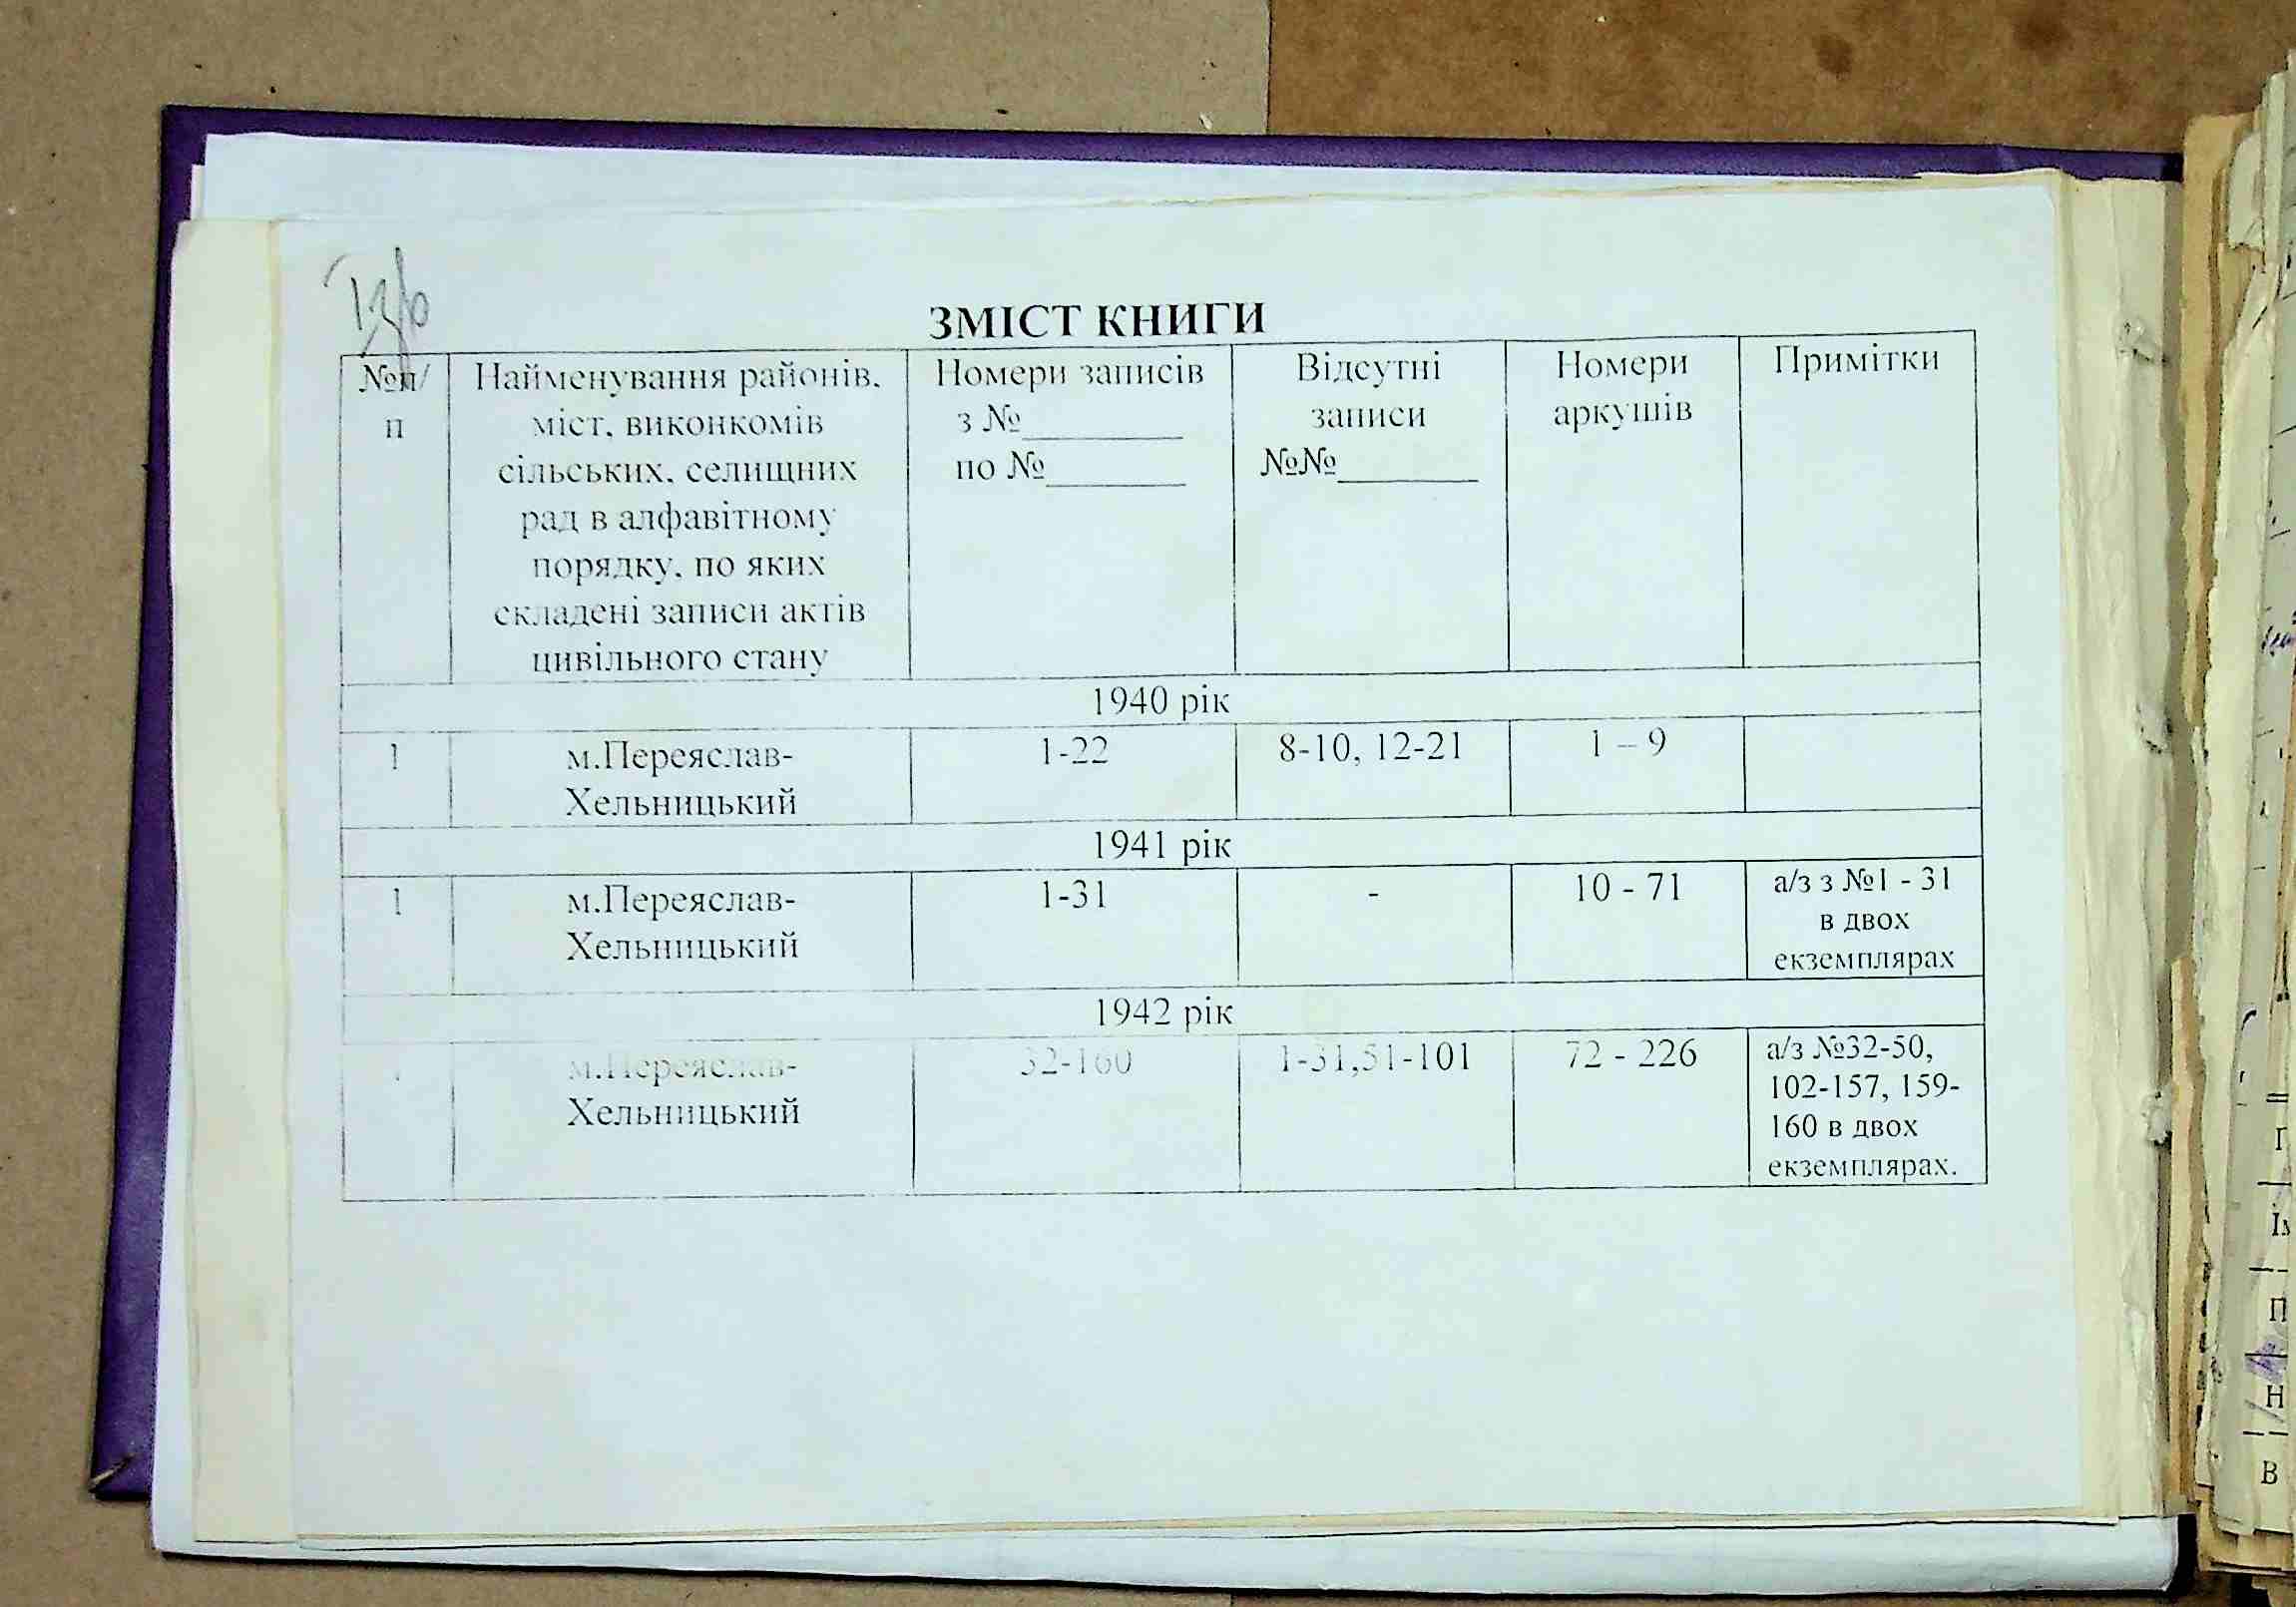 ЗМІСТ КНИГИ
№п/
п
Найменування районів,
міст, виконкомів
сільських, селищних
рад в алфавітному
порядку, по яких
складені записи актів
цивільного стану
Номери записів
з №__________
по №_________
Відсутні
записи
№№_________
Номери
аркушів
Примітки
1940 рік
1
м.Переяслав-
Хельницький
1-22
8-10, 12-21
1 – 9
1941 рік
1
м.Переяслав-
Хельницький
1-31
-
10 - 71
а/з з №1 - 31
в двох
екземплярах
1942 рік
м.Переяслав-
Хельницький
32-160
1-31,51-101
72 - 226
а/з №32-50,
102-157, 159-
160 в двох
екземплярах.